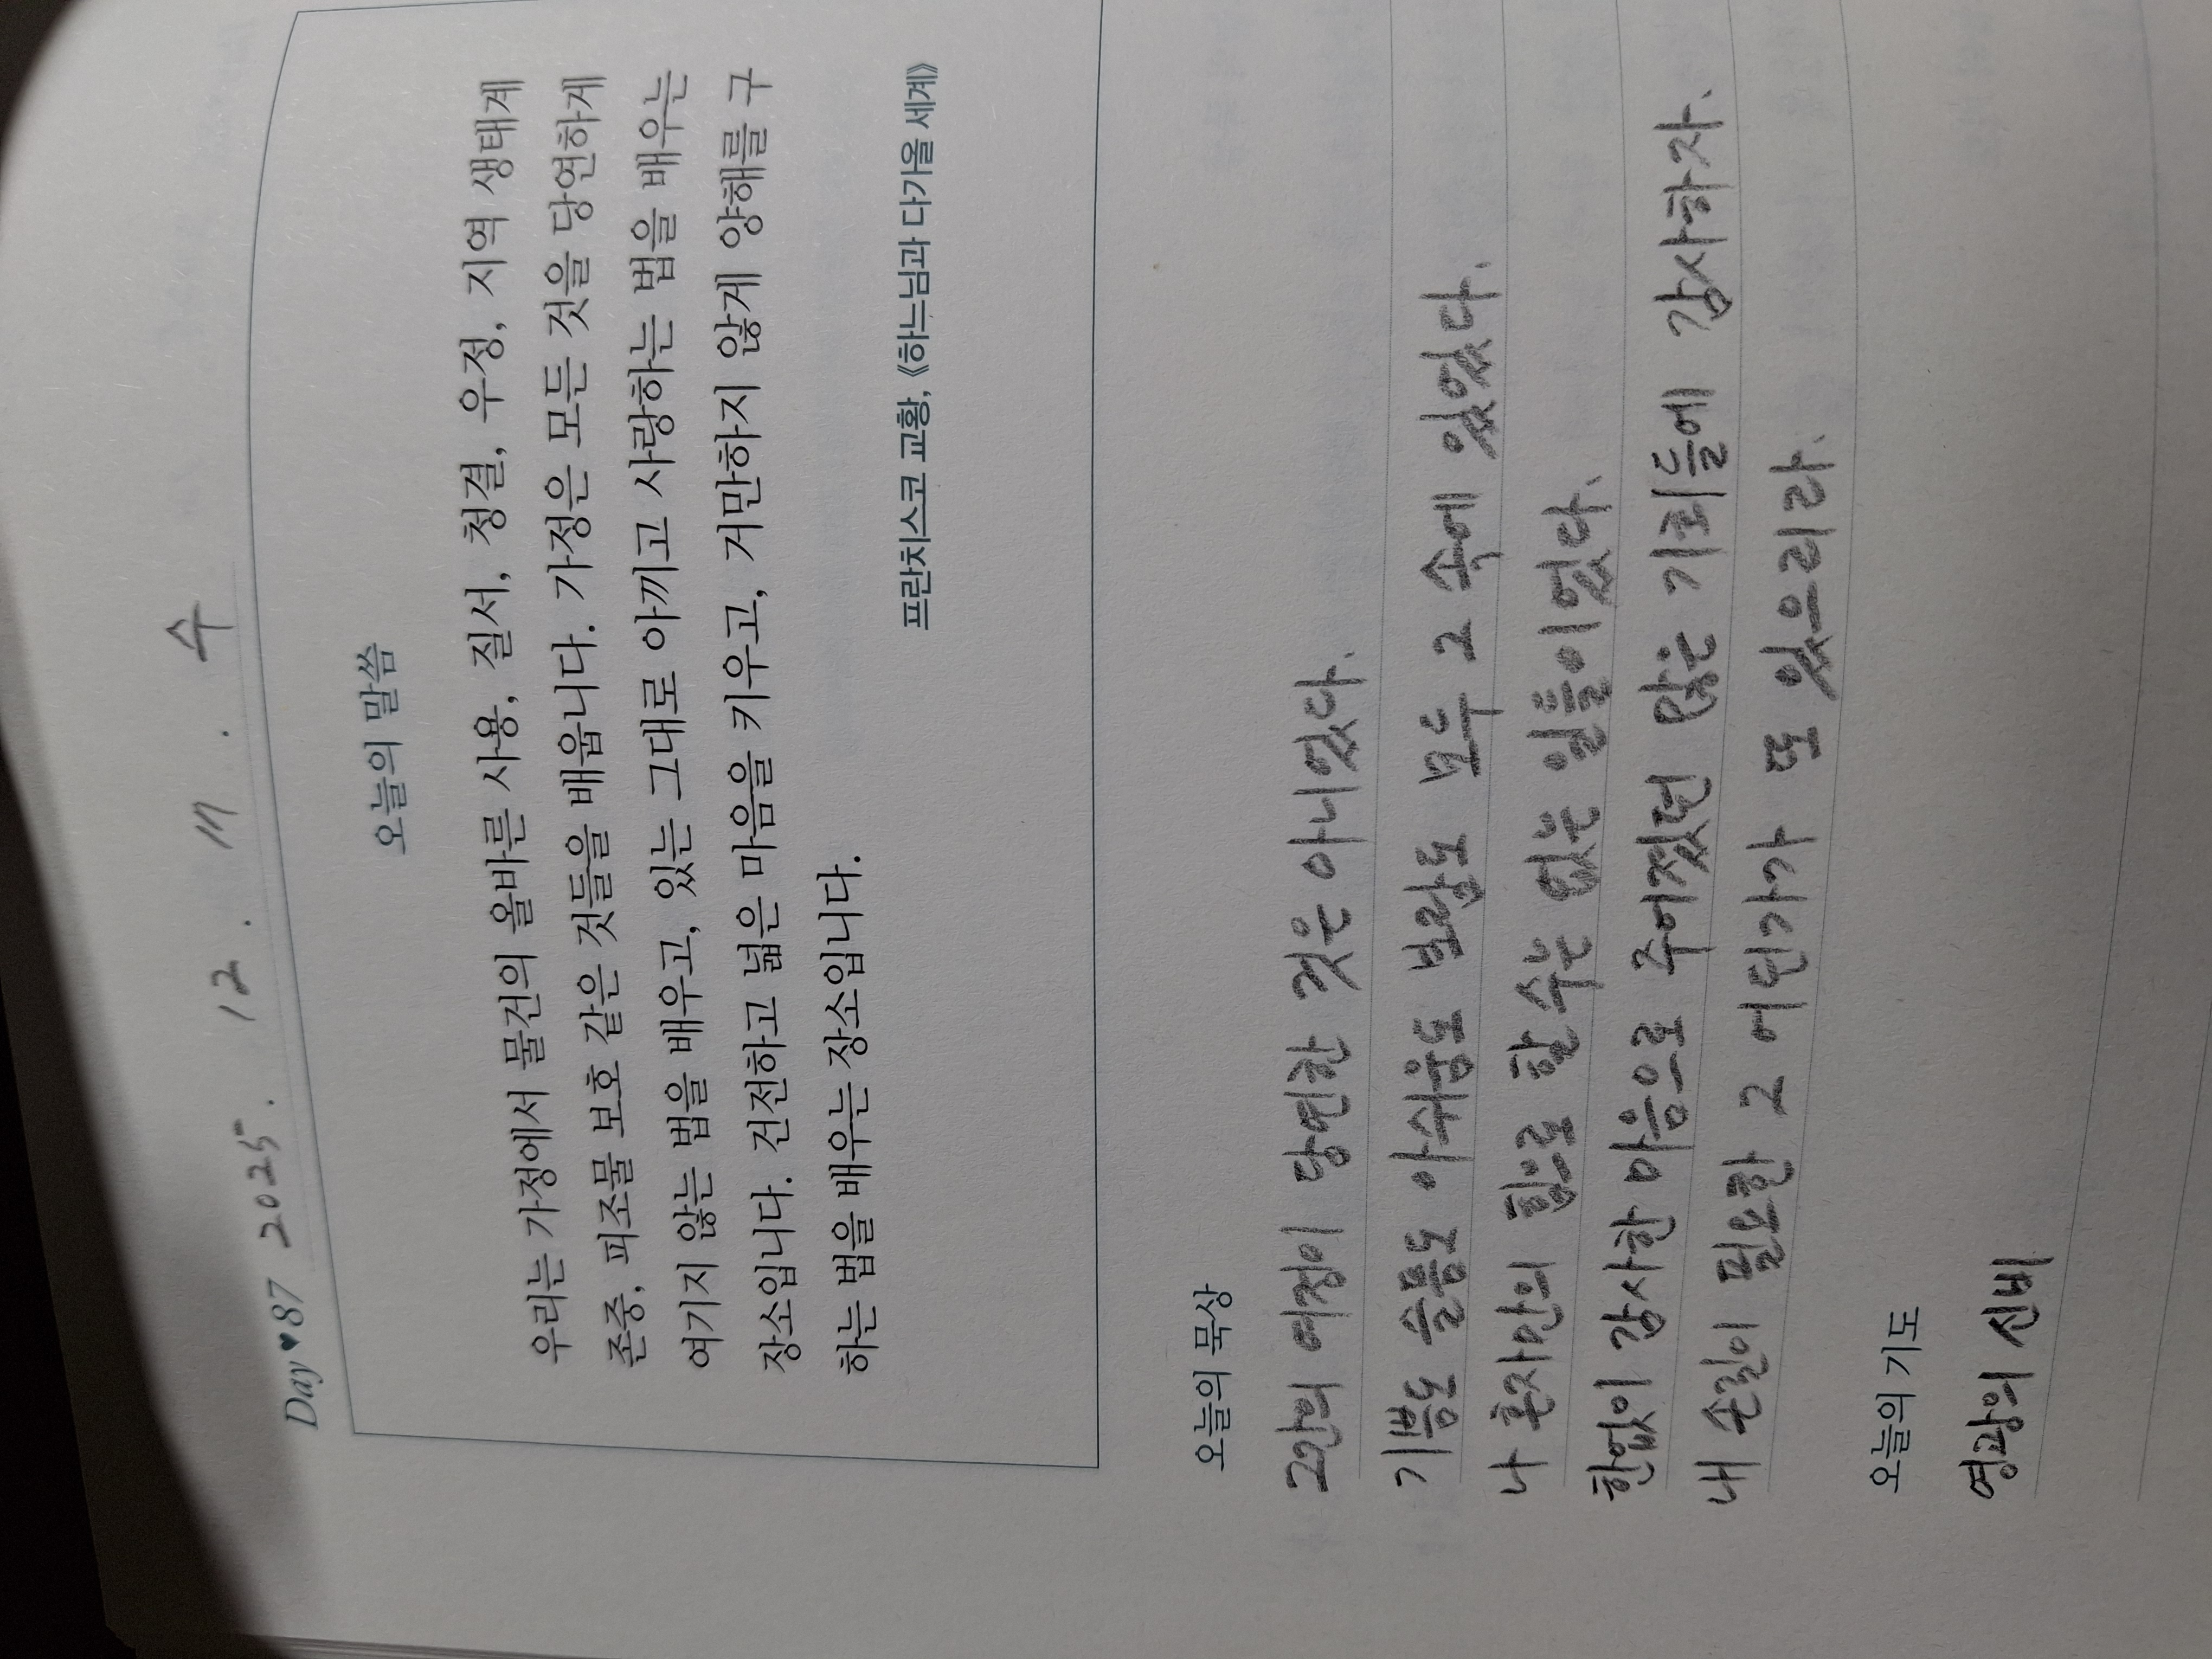 Day♥87 2025. 12. 17. 수
오늘의 말씀
우리는 가정에서 물건의 올바른 사용, 질서, 청결, 우정, 지역 생태계
존중, 피조물 보호 같은 것들을 배웁니다. 가정은 모든 것을 당연하게
여기지 않는 법을 배우고, 있는 그대로 아끼고 사랑하는 법을 배우는
장소입니다. 건전하고 넓은 마음을 키우고, 거만하지 않게 양해를 구
하는 법을 배우는 장소입니다.
프란치스코 교황, 《하느님과 다가올 세계》
오늘의 묵상
그간의 여정이 당연한 것은 아니었다.
기쁨도 슬픔도 아쉬움도 보람도 모두 그 속에 있었다.
나 혼자만의 힘으로 할 수는 없는 일들이었다.
한없이 감사한 마음으로 주어졌던 많은 기회들에 감사하자.
내 손길이 필요한 그 어딘가가 또 있으리라.
오늘의 기도
영광의 신비